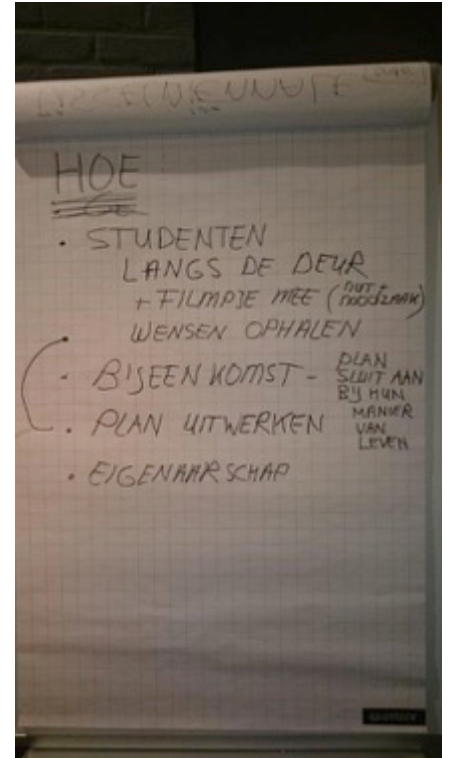 HOE
• STUDENTEN
LANGS DE DEUR
+ FILMPJE MEE (NUT + NOODZAAK)
WENSEN OPHALEN
• BIJEENKOMST - PLAN
SLUIT AAN
BIJ HUN
MANIER
VAN
LEVEN
• PLAN UITWERKEN
• EIGENAARSCHAP